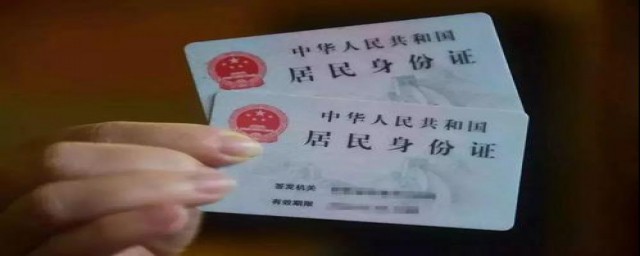 中华人民共和国
居民身份证
中华人民共和国
居民身份证
签发机关
有效期限